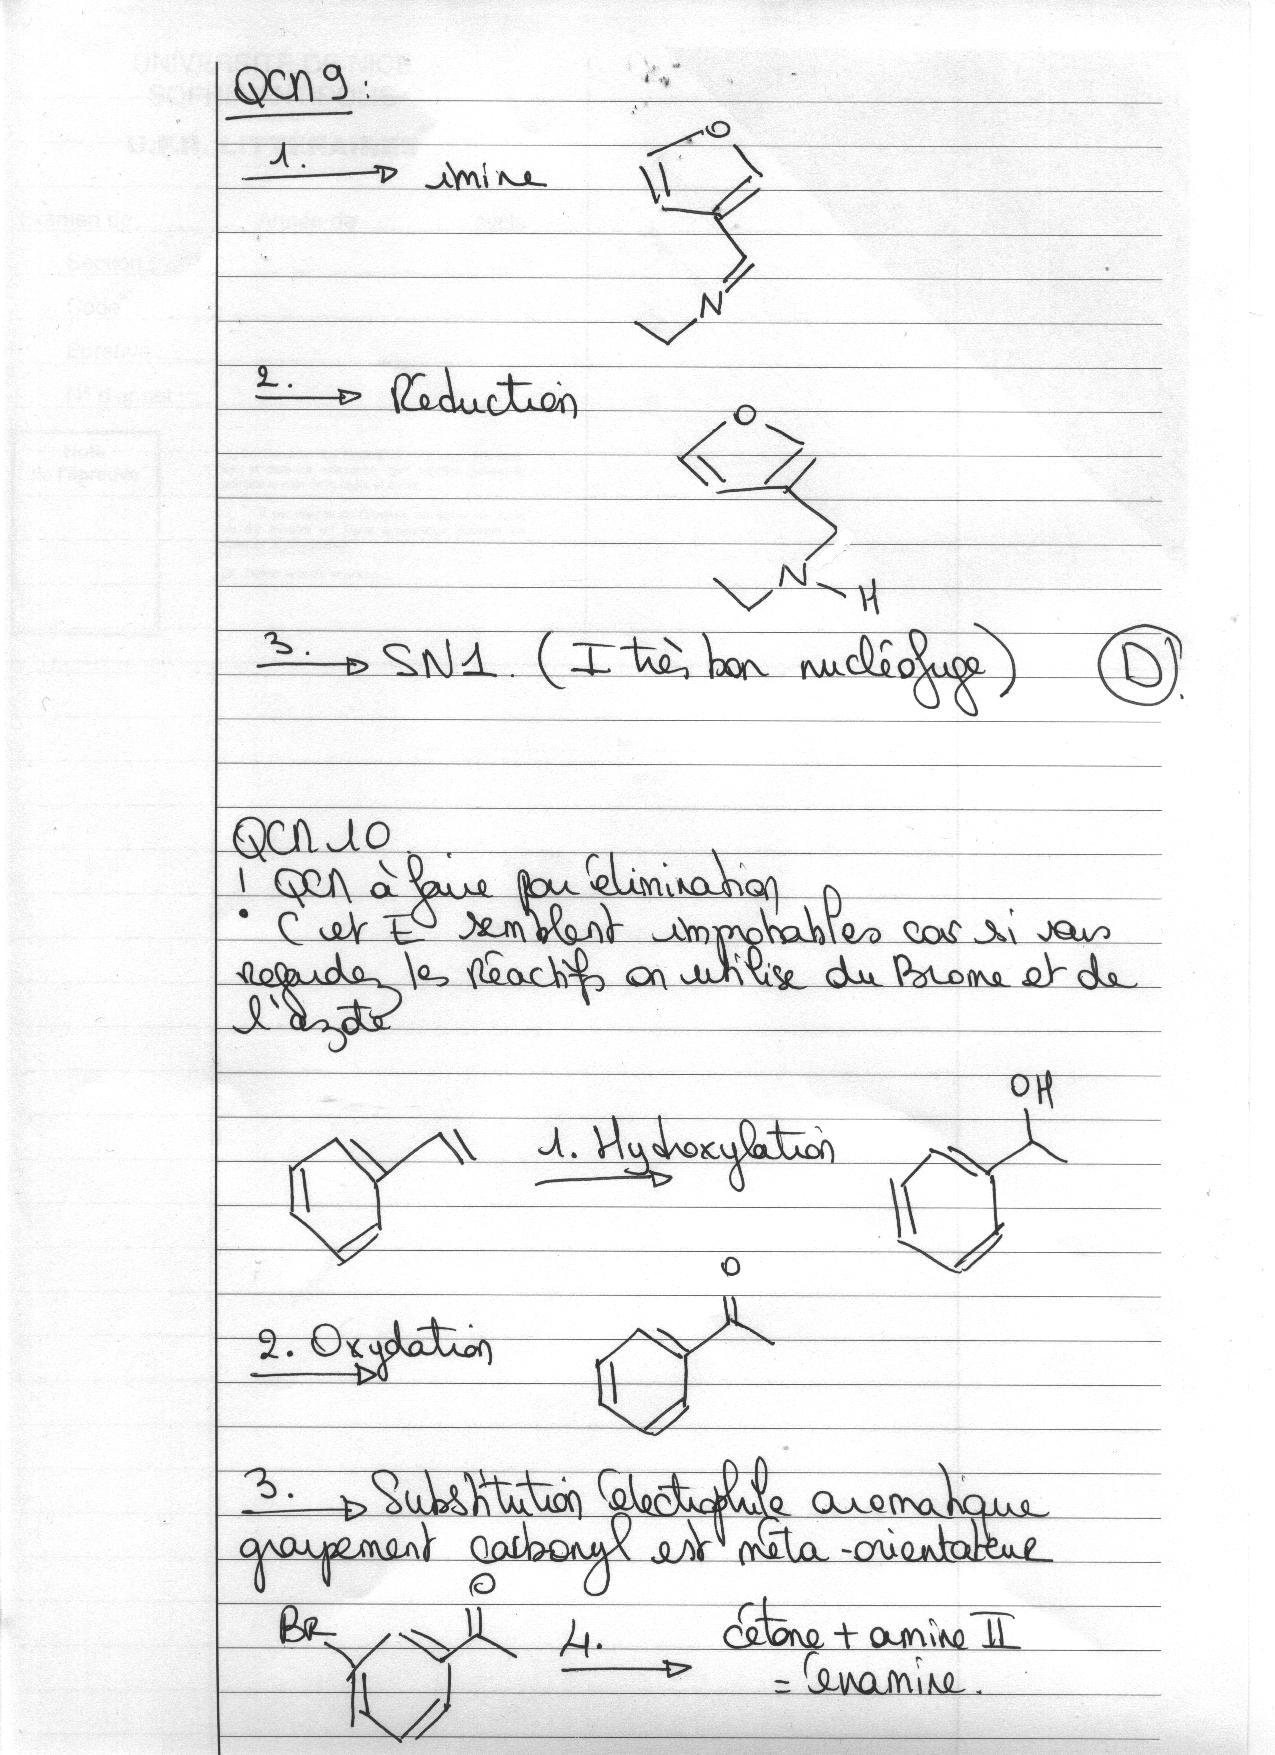 QCM 9 :
1. → imine
O
N
2. → Réduction
O
N
H
3. → SN1. (I très bon nucléofuge) D
QCM 10
! QCM à faire par élimination
• C et E semblent improbables car si vous
regardez les Réactifs on utilise du Brome et de
l'azote
OH
1. Hydroxylation
O
2. Oxydation
3. → Substitution électrophile aromatique
groupement carbonyl est méta-orientateur
O
BR 4. cétone + amine II
= énamine.